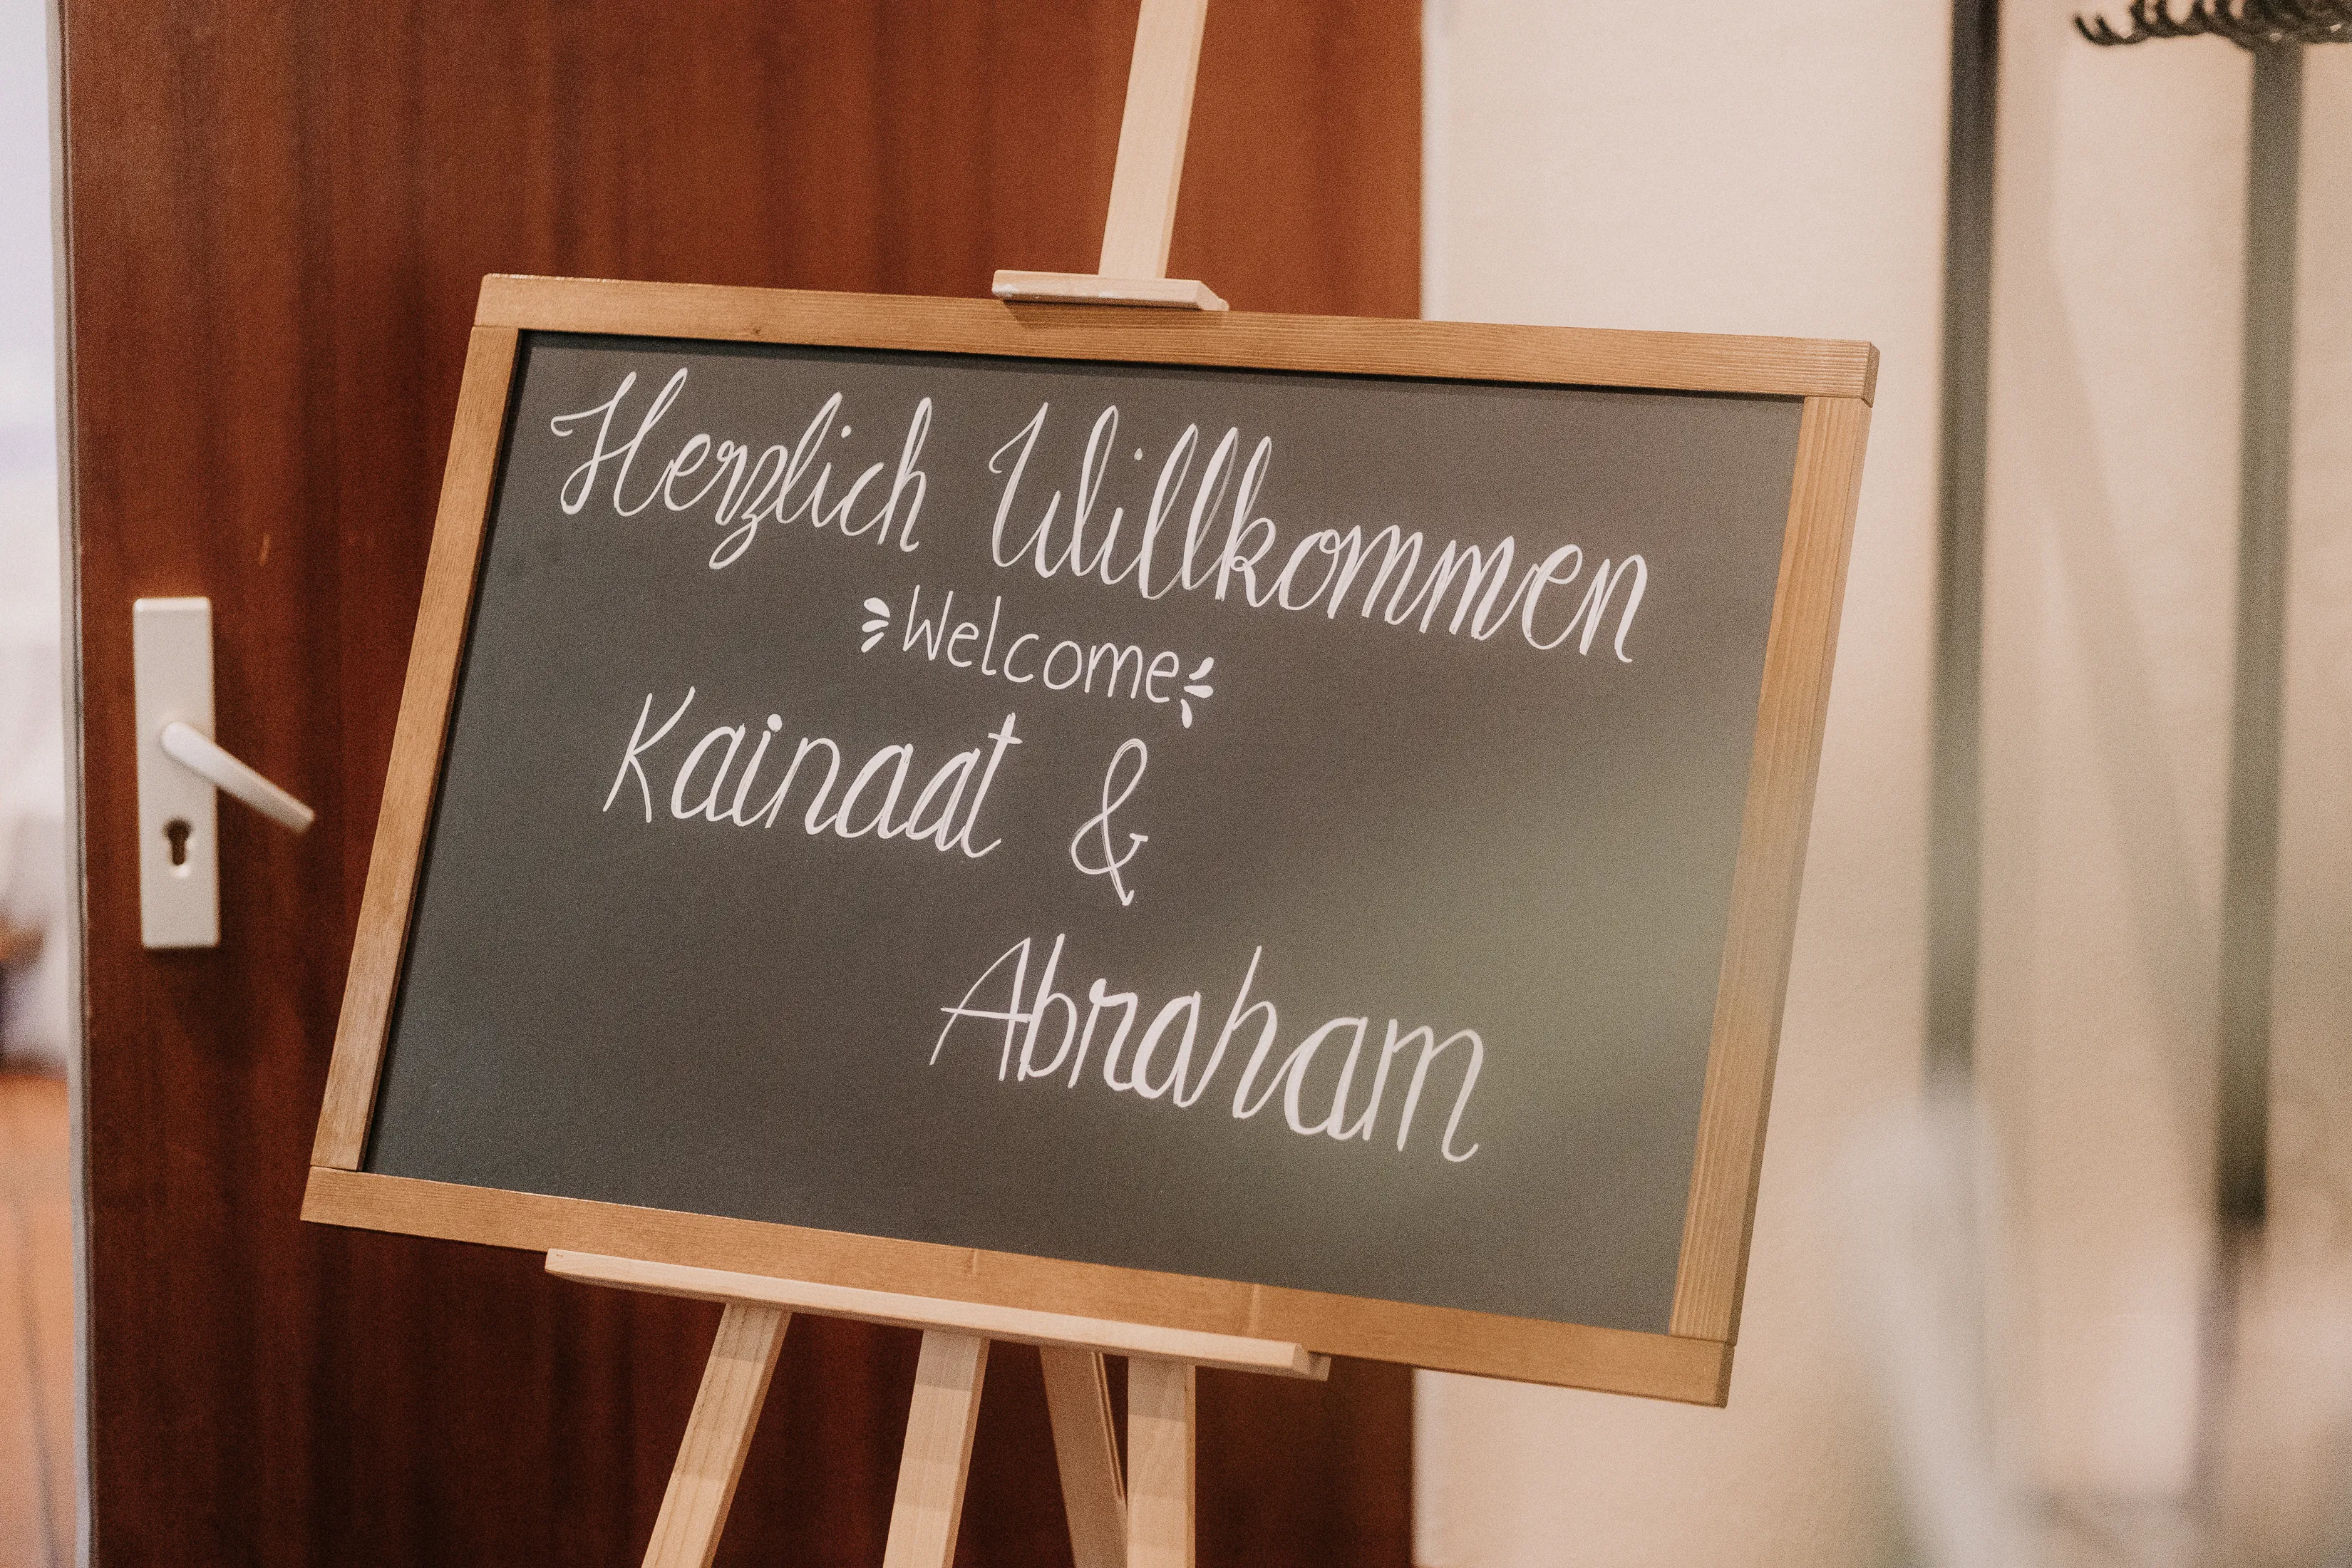 Herzlich Willkommen
Welcome
Kainaat &
Abraham